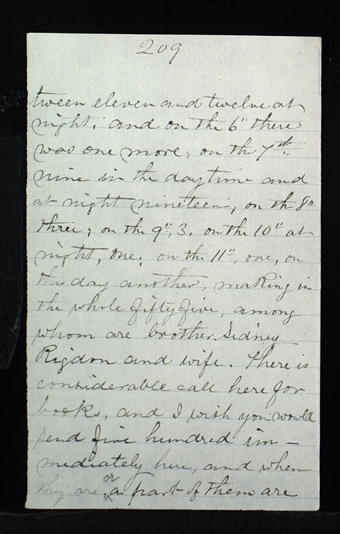 209
tween eleven and twelve at
night; and on the 6" there
was one more, on the 7th.
nine in the daytime and
at night nineteen, on the 8"
three; on the 9", 3, on the 10" at
night, one; on the 11", one, on
this day another, making in
the whole fifty five, among
whom are brother Sidney
Rigdon and wife. There is
considerable call here for
books, and I wish you would
send five hundred im-
mediately here, and when
they are or a part of them are